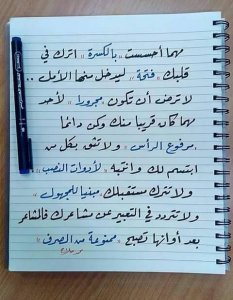 مهما أحسست "بالكسرة" اترك في
قلبك "فتحة" ليدخل منها الأمل ..
لا ترض أن تكون "مجرورا" لأحد
مهما كان قريبا منك وكن دائما
"مرفوع الرأس" ولا تثق بكل من
ابتسم لك وانتبه "لأدوات النصب"
ولا تترك مستقبلك "مبنيا للمجهول"
ولا تتردد في التعبير عن مشاعرك فالمشاعر
بعد أوانها تصبح "ممنوعة من الصرف"